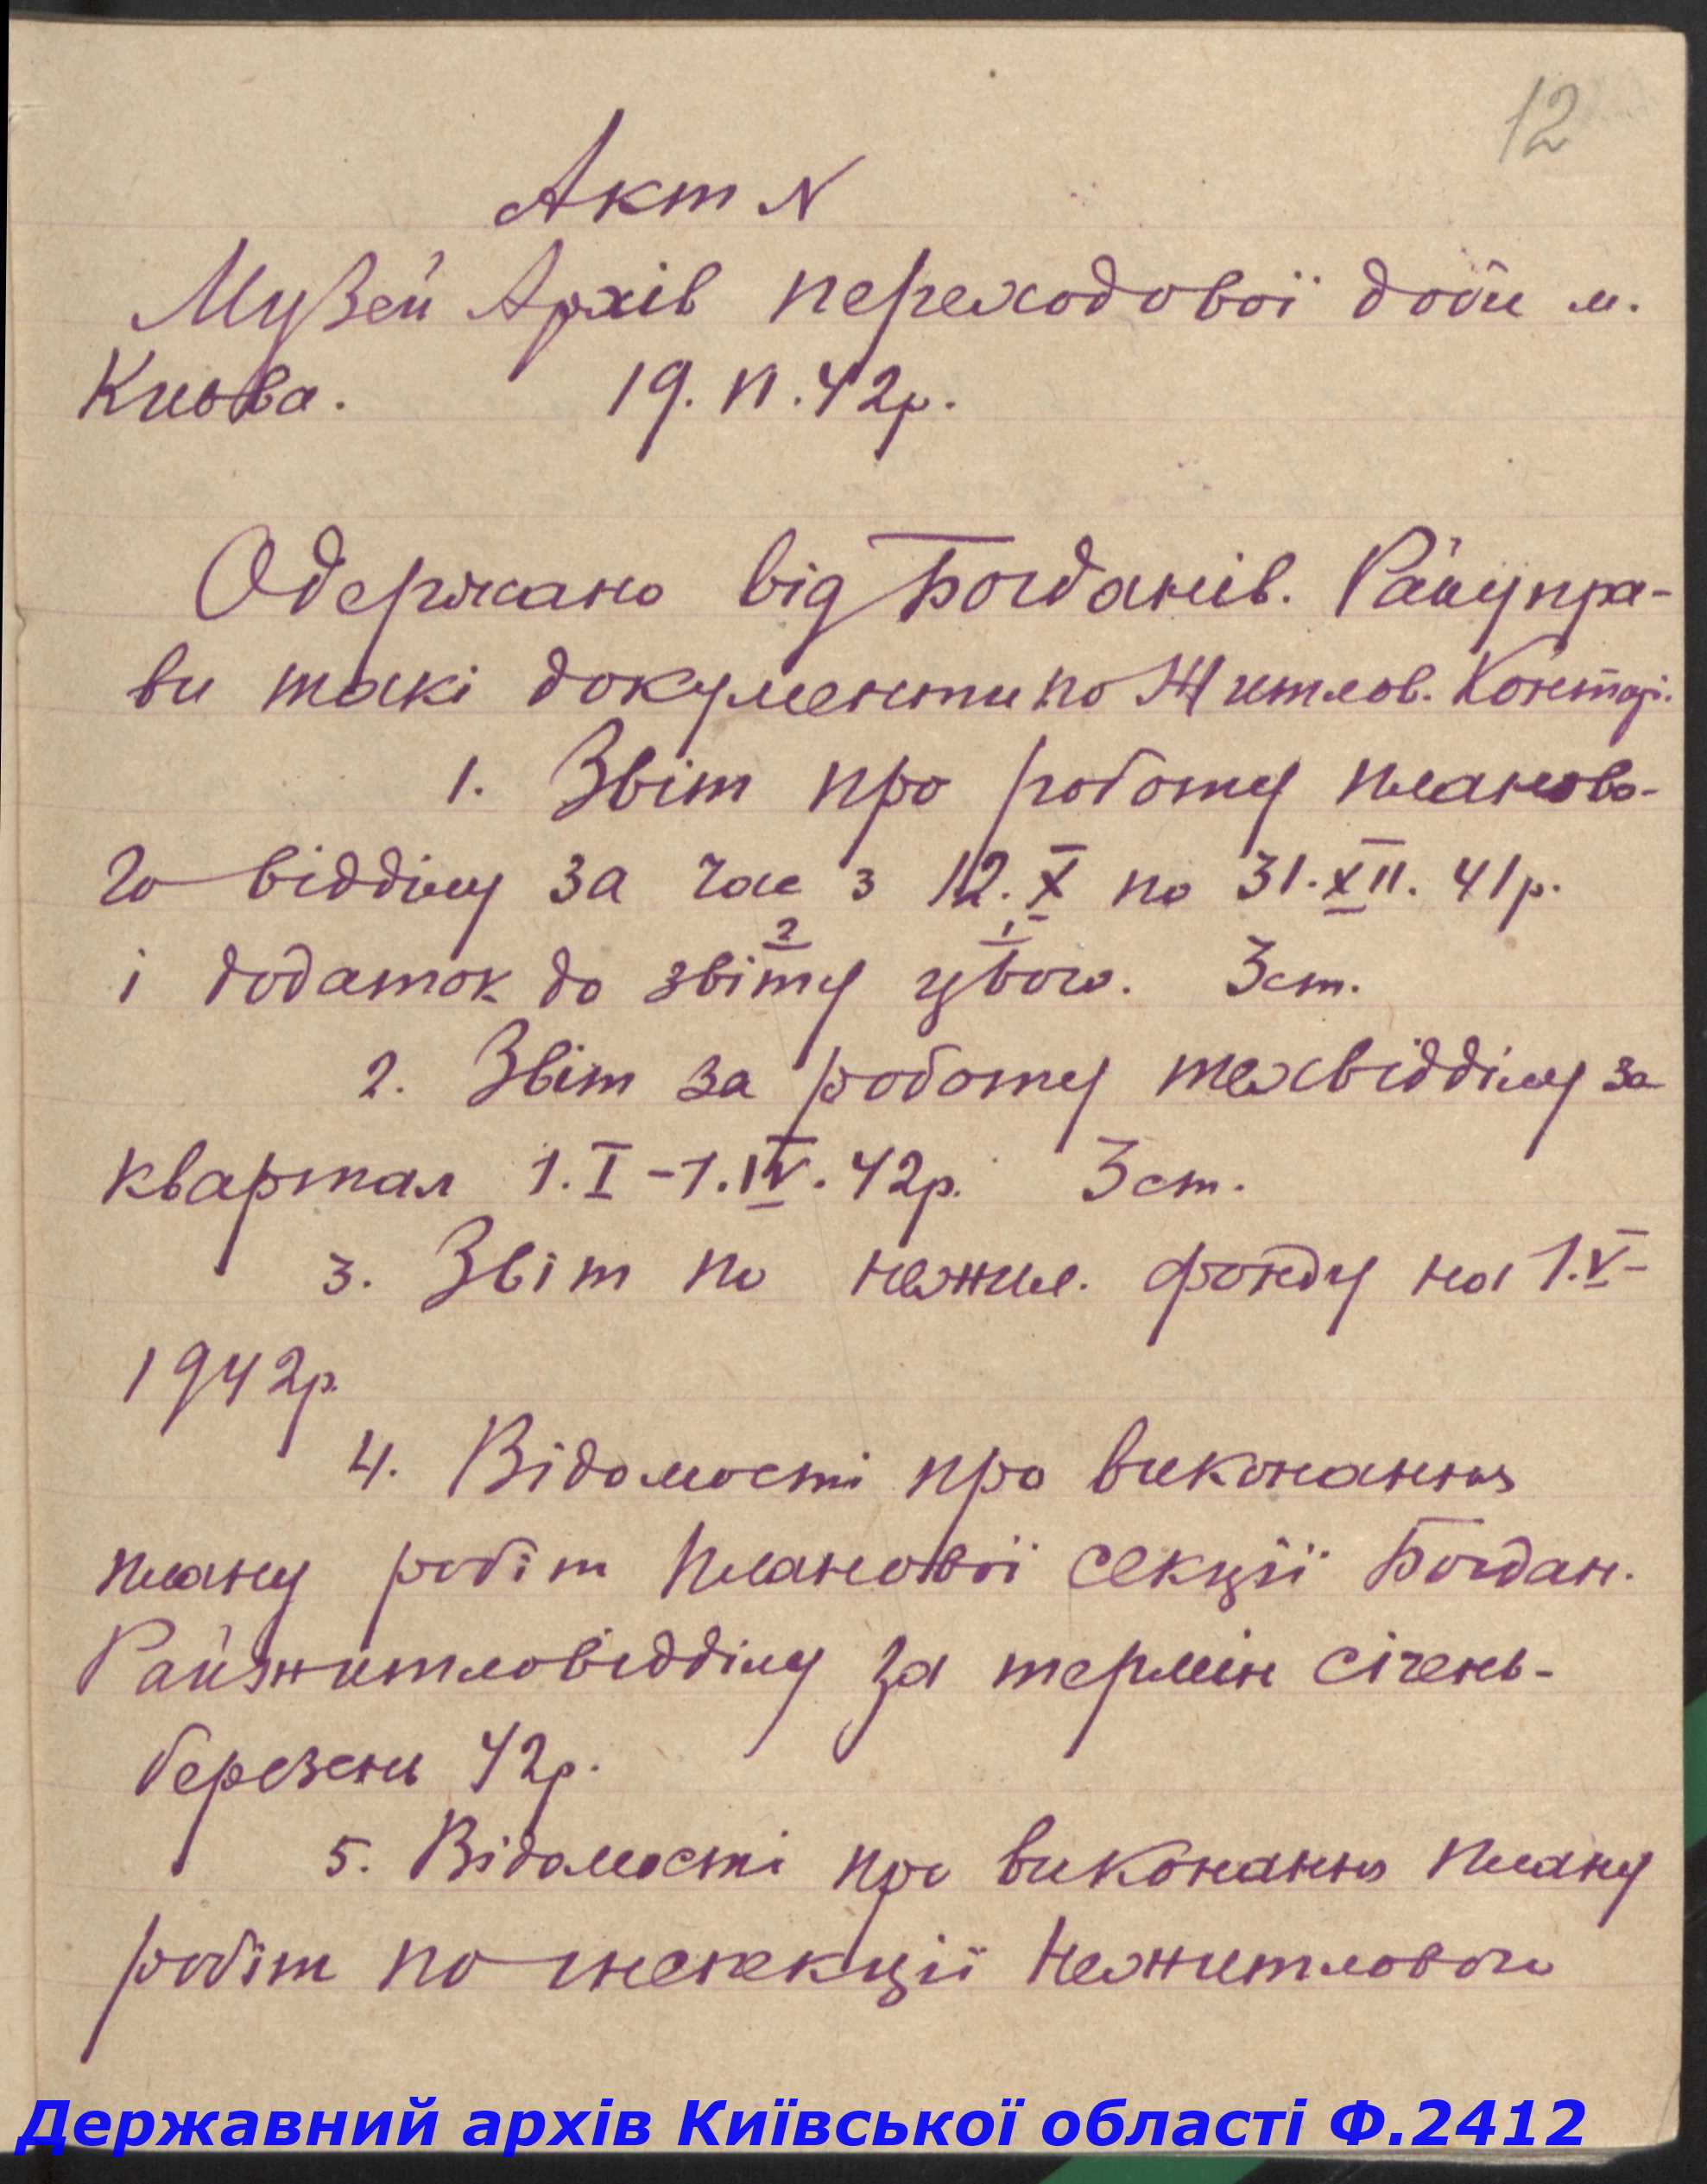 12
Акт N
Музей Архів переходової доби м.
Києва. 19. VI. 42р.
Одержано від Богданів. Райупра-
ви такі документи по Житлов. Конторі.
1. Звіт про роботу планово-
го відділу за час з 12. X по 31. XII. 41р.
2 1
і додаток до звіту цього. 3 ст.
2. Звіт за роботу техвідділу за
квартал 1. I - 1. IV. 42р. 3 ст.
3. Звіт по нежил. фонду на 1. V -
1942р.
4. Відомості про виконання
плану робіт планової секції Богдан.
Райжитловідділу за термін січень-
березень 42р.
5. Відомості про виконання плану
робіт по інспекції нежитлового
Державний архів Київської області Ф.2412